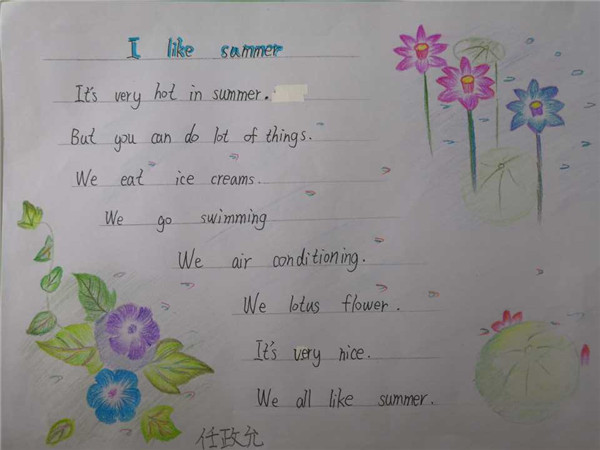 I like summer
It's very hot in summer.
But you can do lot of things.
We eat ice creams.
We go swimming
We air conditioning.
We lotus flower.
It's very nice.
We all like summer.
任政允